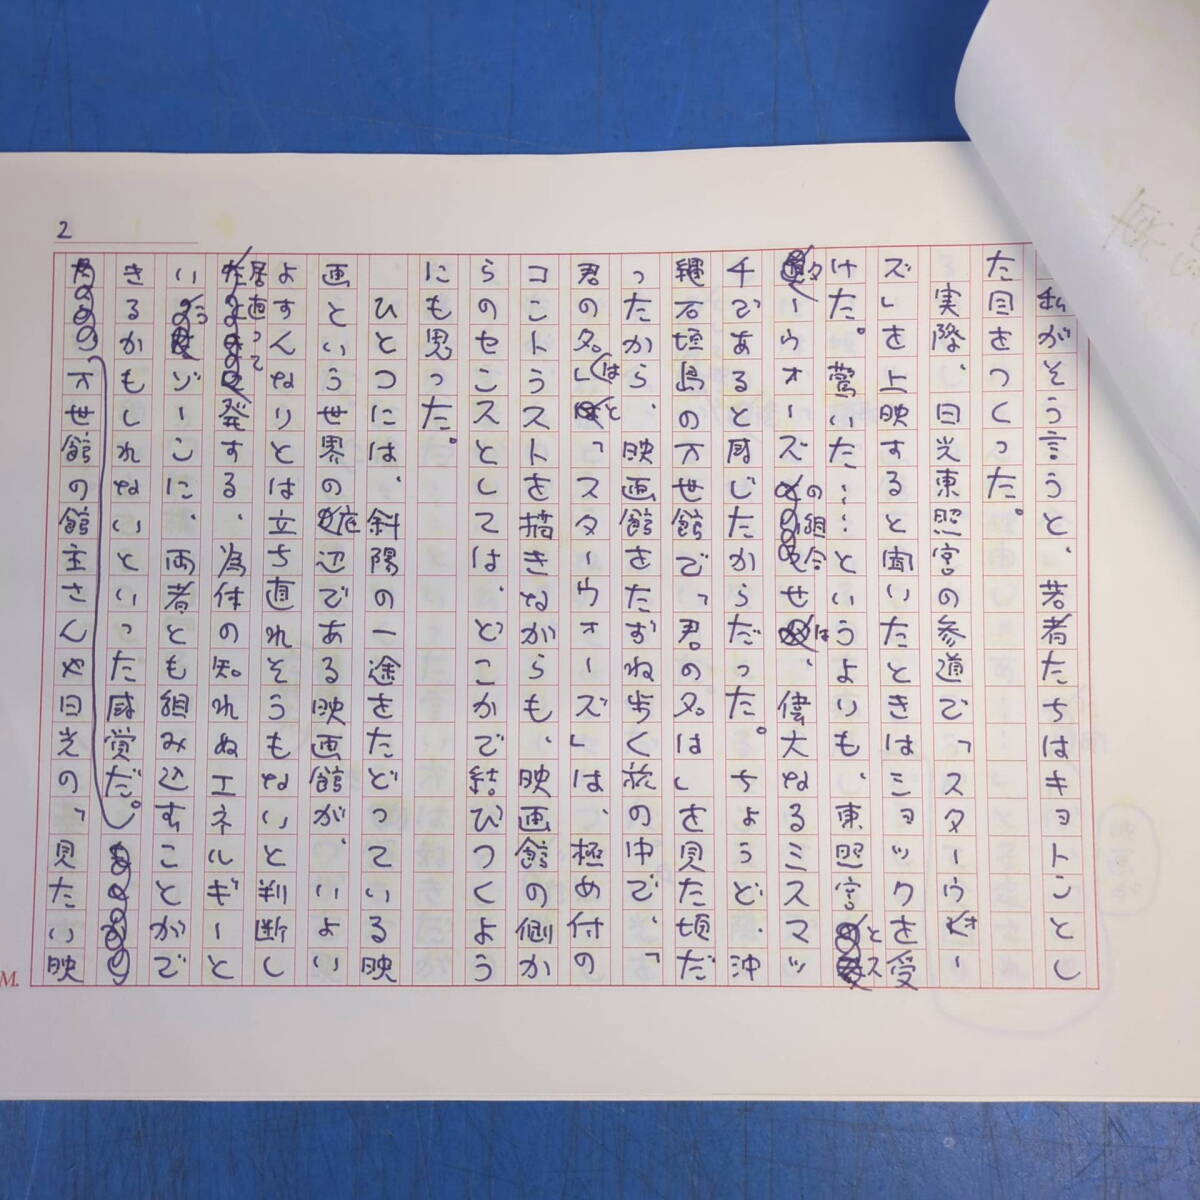 2
私がそう言うと、若者たちはキョトンとし
た目をつくった。
実際、日光東照宮の参道で「スターウォー
ズ」を上映すると聞いたときはショックを受
けた。驚いた……というよりも、東照宮とス
ターウォーズの組合せは、偉大なるミスマッ
チであると感じたからだった。ちょうど、沖
縄石垣島の万世館で、「君の名は」を見た頃だ
ったから、映画館をたずね歩く旅の中で、「
君の名は」と「スターウォーズ」は、極め付の
コントラストを描きながらも、映画館の側か
らのセンスとしては、どこかで結びつくよう
にも思った。
ひとつには、斜陽の一途をたどっている映
画という世界の底辺である映画館が、いよい
よすんなりとは立ち直れそうもないと判断し
居直って発する、為体の知れぬエネルギーと
いうゾーンに、両者とも組み込むことがで
きるかもしれないといった感覚だ。
万世館の館主さんや日光の「見たい映
M.